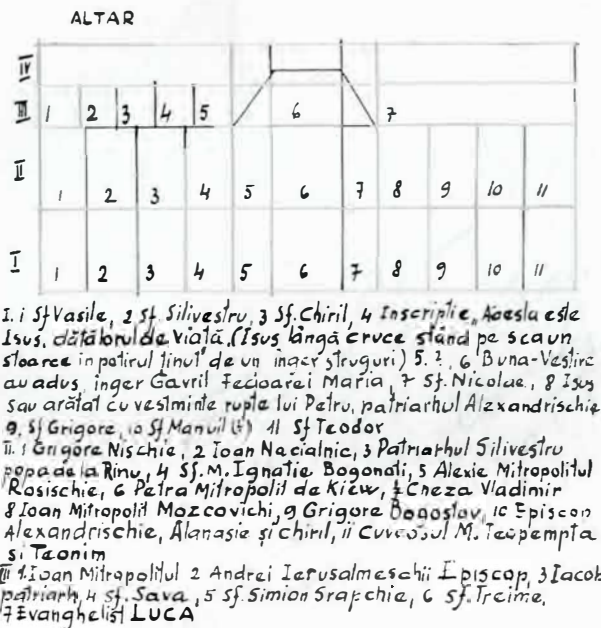 ALTAR
IV
III 1 2 3 4 5 6 7
II 1 2 3 4 5 6 7 8 9 10 11
I 1 2 3 4 5 6 7 8 9 10 11
I. i Sf Vasile, 2 Sf. Silivestru, 3 Sf. Chiril, 4 Inscriptie, Acesta este
Isus, dătătorul de Viată, (Isus lângă cruce stând pe scaun
stoarce in potirul ținut de un inger struguri) 5. ?, 6. Buna-Vestire
au adus inger Gavril Fecioarei Maria, 7 Sf. Nicolae, 8 Isus
sau arătat cu vestminte rupte lui Petru, patriarhul Alexandrischie
9. Sf Grigore, 10 Sf Manuil (?) 11 Sf Teodor
II. 1 Grigore Nischie, 2 Ioan Nacialnic, 3 Patriarhul Silivestru
popa de la Rinu, 4 Sf. M. Ignatie Bogonati, 5 Alexie Mitropolitul
Rosischie, 6 Petra Mitropolit de Kiew, 7 Cneza Vladimir
8 Ioan Mitropolit Mozcovichi, 9 Grigore Bogoslov, 10 Episcop
Alexandrischie, Atanasie și chiril, 11 Cuveosul M. Teopempta
si Teonim
III 1. Ioan Mitropolitul 2 Andrei Ierusalmeschii Episcop, 3 Iacob
patriarh, 4 Sf. Sava, 5 Sf. Simion Srapchie, 6 Sf. Treime,
7 Evanghelist LUCA